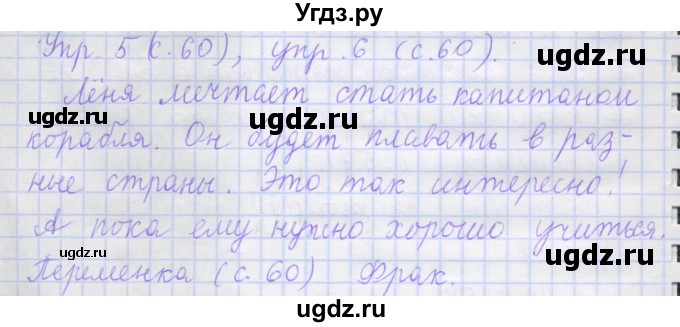 Угдз.ру
Упр. 5 (с. 60), упр. 6 (с. 60).
ugdz.ru ugdz.ru
Лёня мечтает стать капитаном
ugdz.ru ugdz.ru
корабля. Он будет плавать в раз-
ugdz.ru
ные страны. Это так интересно!
ugdz.ru ugdz.ru
А пока ему нужно хорошо учиться.
ugdz.ru ugdz.ru
Переменка (с. 60) Фрак.
ugdz.ru
ugdz.ru